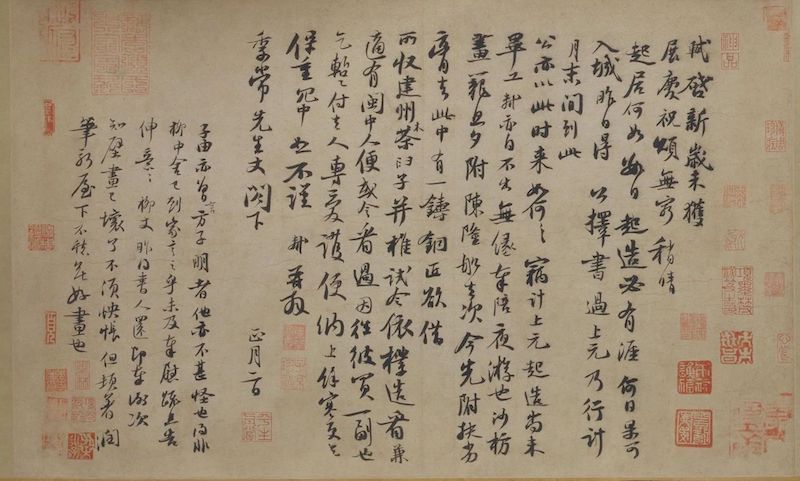 軾啓新歲未獲
展慶祝頌無窮稍晴
起居何如數日起造必有涯何日果可
入城昨日得公擇書過上元乃行計
月末間到此
公亦以此時來如何之竊計上元起造尚未
畢工軾亦自不出無緣奉陪夜游也沙枋
畫籠旦夕附陳隆船去次今先附扶劣
膏去此中有一鑄銅匠欲借
所收建州木茶臼子并椎試令依樣造看兼
適有閩中人便或令看過因往彼買一副也
乞暫付去人專愛護便納上餘寒更乞
保重冗中恕不謹軾再拜
季常先生丈閣下
正月二日
子由亦曾言方子明者他亦不甚怪也得非
柳中舍已到家言之乎未及奉慰疏且告
伸意之柳丈昨得書人還即奉謝次
知壁畫已壞了不須怏悵但頓著潤
筆新屋下不愁無好畫也